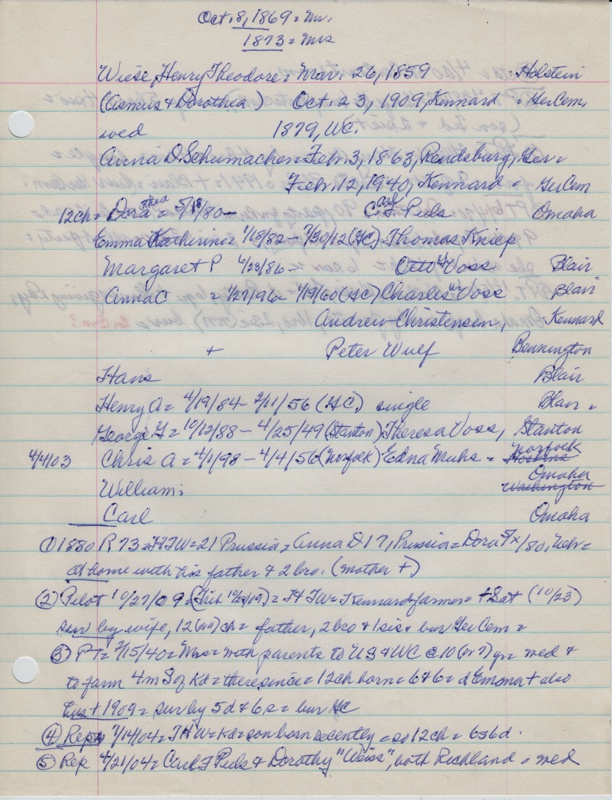 Oct. 8, 1869 = Mr.
1873 = Mrs
Wiese, Henry Theodore = Mar. 26, 1859 = Holstein
(Asmus & Dorothea) Oct. 23, 1909, Kennard = GerCem.
wed 1879, WC.
Anna D. Schumacher = Feb. 3, 1863, Rendsburg, Ger =
Feb. 12, 1940, Kennard = GerCem
12ch = Dora = 5/18/80 - Carl Puls Omaha
Emma Katherine = 1/18/82 - 7/30/12 (GC) = Thomas Kniep
Margaret P 4/28/86 - Otto Voss Blair
Anna C = 1/27/96 - 1/19/60 (GC) Charles Voss Blair
Andrew Christensen, Kennard
+ Peter Wulf Bennington
Hans Blair
Henry A = 4/19/84 - 2/11/56 (GC) single Blair =
George H = 10/12/88 - 4/25/49 (Stanton) Theresa Voss, Stanton
4/4/03 Chris A = 4/1/98 - 4/4/56 (Norfolk) Edna Muhs = Norfolk
William: Omaha Washington
Carl Omaha
① 1880 R 73 = HTW = 21 Prussia = Anna D 17, Prussia = Dora 5x/80, Neb =
at home with his father & 2 bro. (mother +)
② Pilot 10/27/09 = = HTW = Kennard farmer = + Sat (10/23)
sur by wife, 12 ch = father, 2 bro & 1 sis = bur GerCem =
③ PT = 2/15/40 = Mrs = with parents to US & WC @ 10 (or 7) yr = wed &
to farm 4 m S of Kd = there since = 12ch born = 6 & 6 = d Emma + also
hus + 1909 = sur by 5 d & 6 s = bur GC
④ Rep 7/14/04 = THW = Kd = son born recently = so 12 ch = 6s 6d.
⑤ Rep 4/21/04 = Carl F Puls & Dorothy "Weiss", both Richland = wed